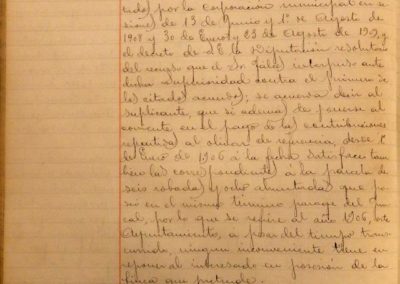 tado) por la Corporación municipal en se-
siones) de 13 de Junio y 1º de Agosto de
1908 y 30 de Enero y 23 de Agosto de 1909, y
el decreto de la Diputación resolutorio
del recurso que el Sr. interpuso ante
dicha superioridad contra el primero de
los citados acuerdos); se acuerda decir al
suplicante, que si además) de ponerse al
corriente en el pago de las contribuciones
respectivas) al olivar de referencia, desde 1º
de Enero de 1906 á la fecha satisface tam-
bien las correspondientes) á la parcela de
seis robadas) y ocho almutadas que po-
see en el mismo término parage del
cal, por lo que se refire al año 1906, este
Ayuntamiento, á pesar del tiempo trans-
currido, ningun inconveniente tiene en
reponer al interesado en posesión de la
finca que pretende.